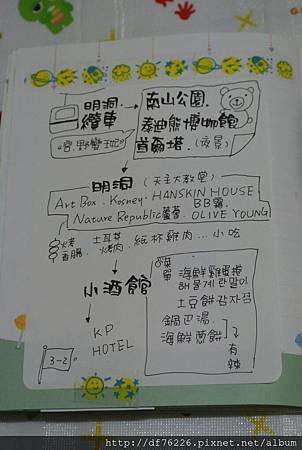 明洞.
纜車
"宮.野蠻王妃"
南山公園.
泰迪熊博物館
首爾塔.(夜景)
明洞 (天主大教堂)
Art Box. Kosney. HANSKIN HOUSE
BB霜.
Nature Republic蘆薈. OLIVE YOUNG
烤香腸、土耳其烤肉、紙杯雞肉...小吃
小酒館
KP
HOTEL
3-2
菜單
海鮮雞蛋捲
해물계란말이
土豆餅감자전
鍋巴湯.
海鮮蔥餅
有辣
http://df76226.pixnet.net/album